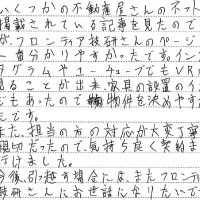 いくつかの不動産屋さんのネット
掲載されている記事を見たので
が、フロンティア技研さんのページ
一番分かりやすかったです。イン
タグラムやユーチューブでもVRが
ることが出来、家具の設置のイメ
もあったので物件を決めやす
たです。
また、担当の方の対応が大変丁寧
親切だったので、気持ち良く契約ま
行けました。
今後、引っ越す場合には、またフロンティ
技研さんにお世話になりたいで